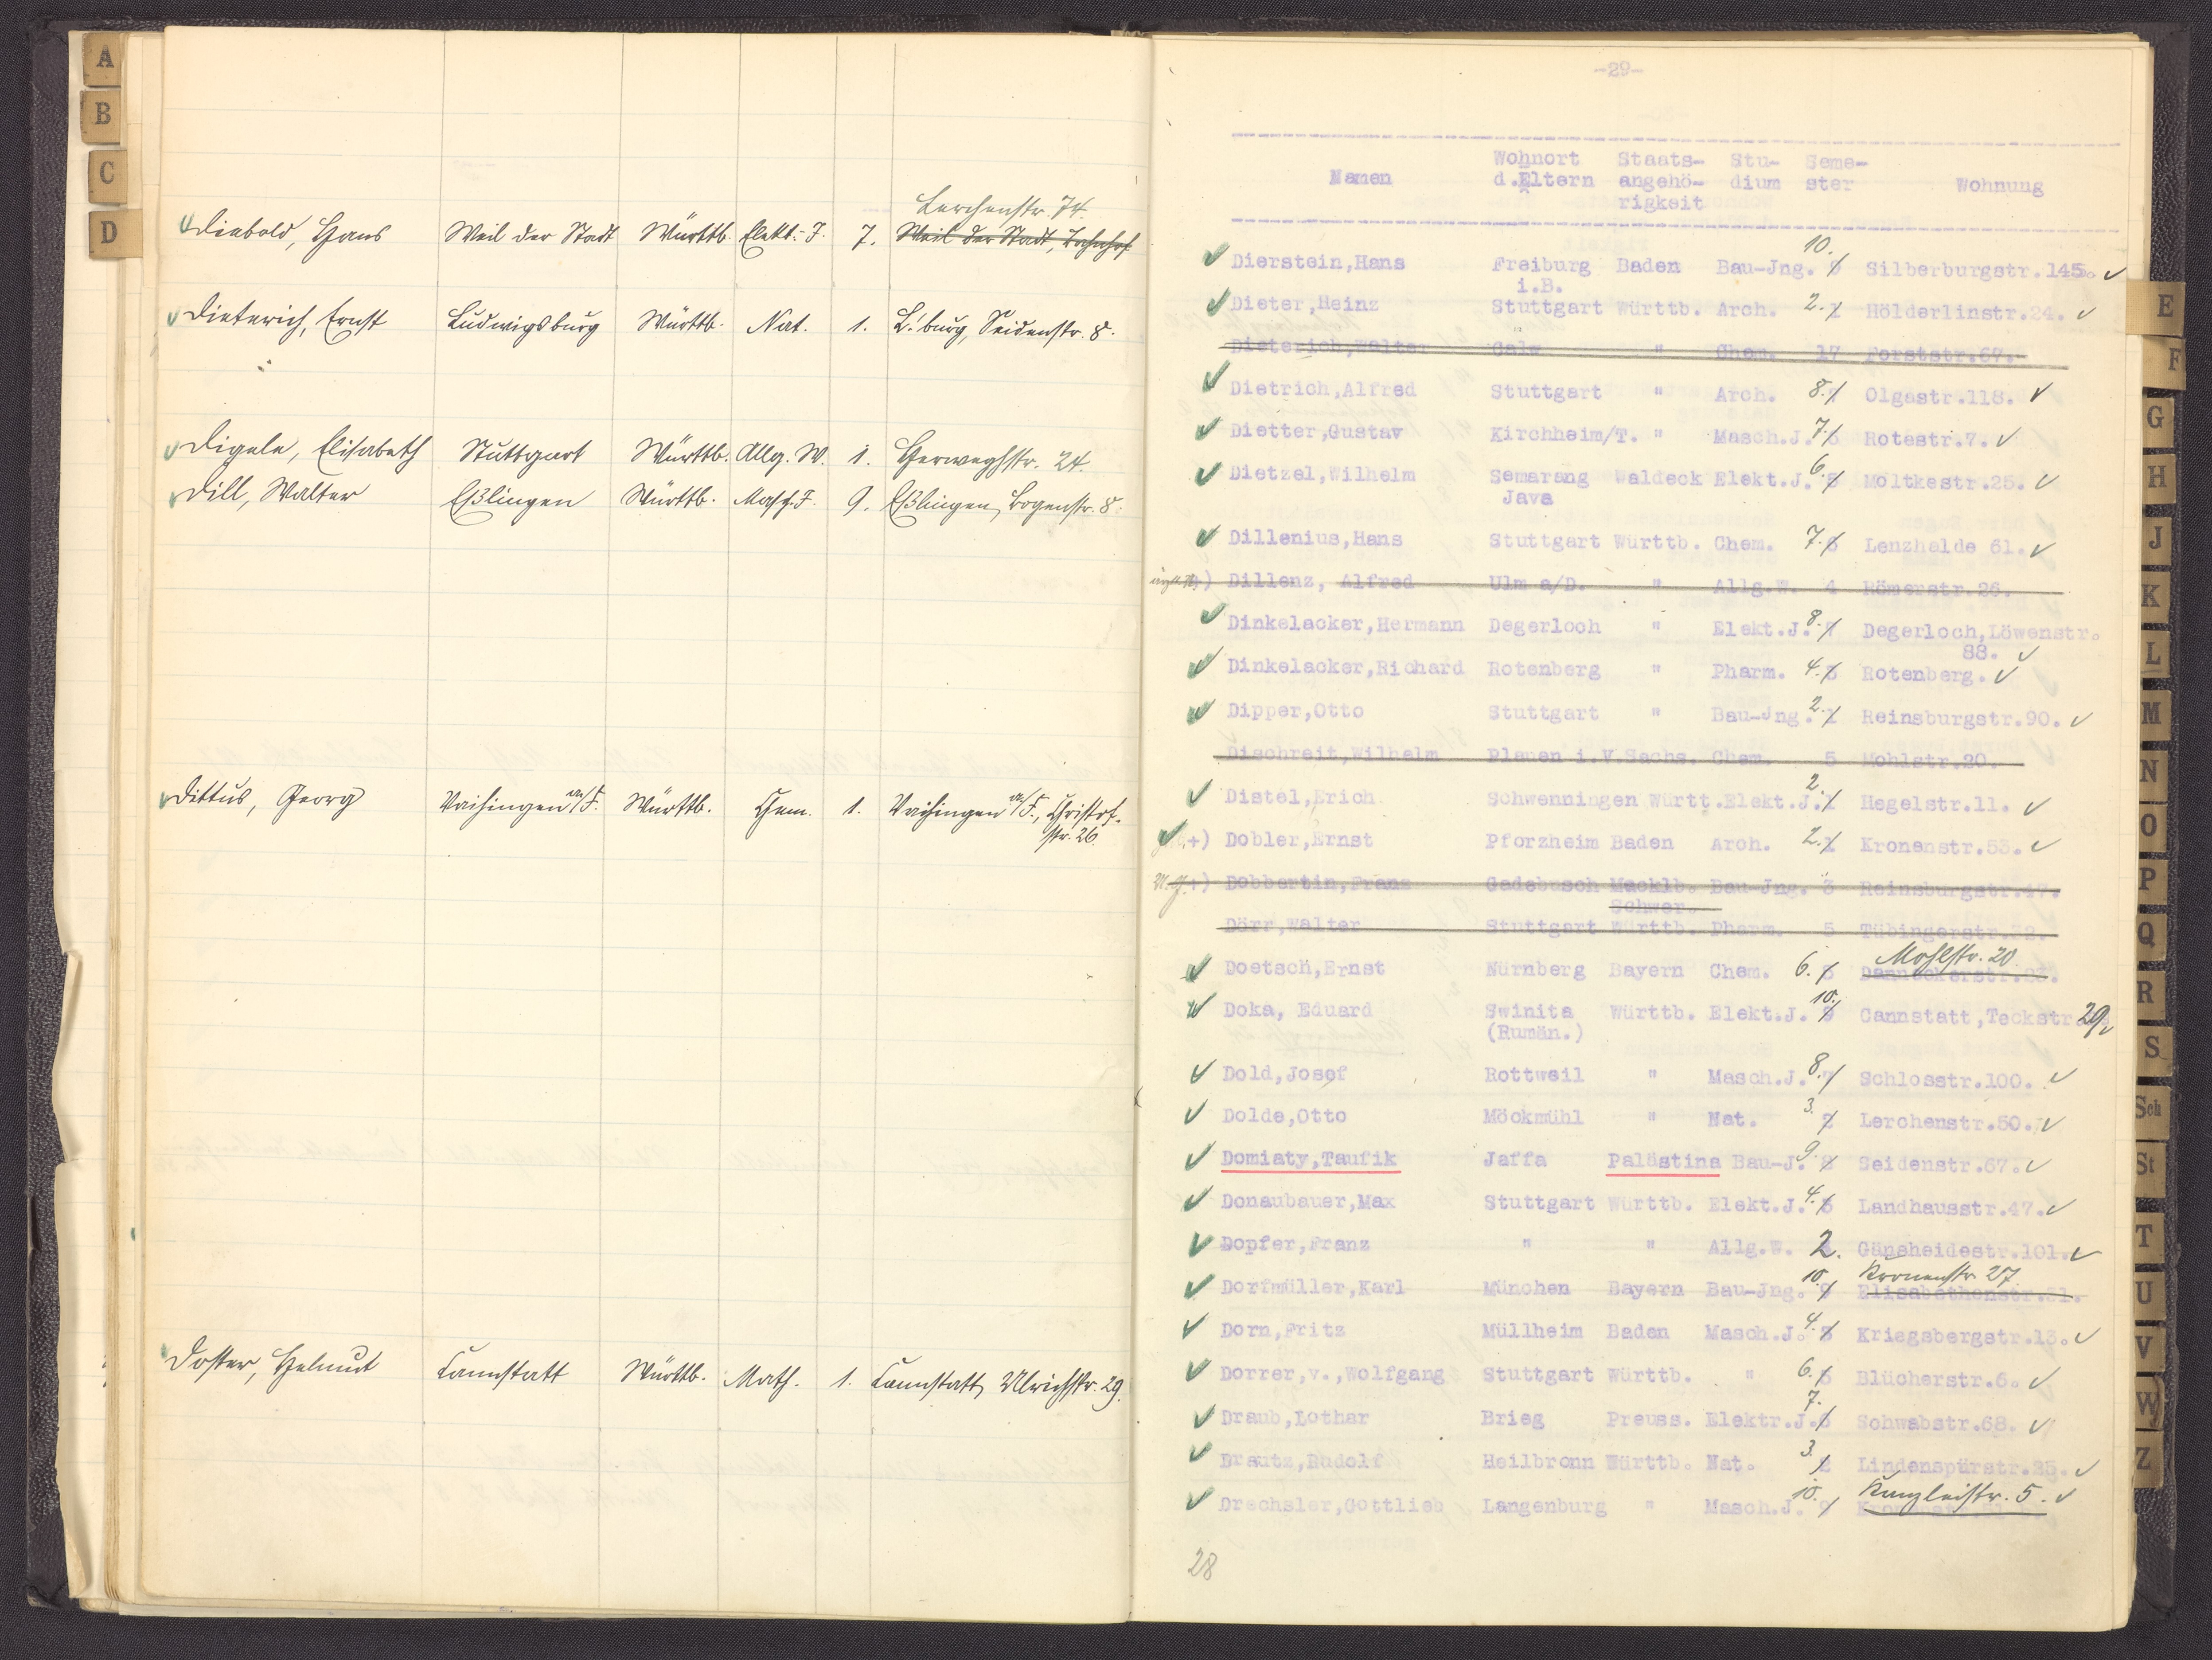 A
B
C
D
Lerchenstr. 74.
Diebold, Hans Weil der Stadt Württb. Elekt. J. 7. Weil der Stadt, Bahnhof
Dieterich, Ernst Ludwigsburg Württb. Nat. 1. L.'burg, Seidenstr. 8.
Digele, Elisabeth Stuttgart Württb. Allg. W. 1. Herweghstr. 24.
Dill, Walter Eßlingen Württb. Masch. J. 9. Eßlingen, Bogenstr. 8.
Dittus, Georg Vaihingen a/F. Württb. Chem. 1. Vaihingen a/F., Christof-
str. 26.
Doster, Helmut Cannstatt Württb. Math. 1. Cannstatt, Ulrichstr. 29.
-29-
Wohnort Staats- Stu- Seme-
Namen d.Eltern angehö- dium ster Wohnung
rigkeit
Dierstein,Hans Freiburg Baden Bau-Jng. 10. Silberburgstr.145.
i.B.
Dieter,Heinz Stuttgart Württb. Arch. 2. 1 Hölderlinstr.24.
Dieterich,Walter Calw " Chem. 17 Forststr.67.
Dietrich,Alfred Stuttgart " Arch. 8. Olgastr.118.
Dietter,Gustav Kirchheim/T. " Masch.J. 7. Rotestr.7.
Dietzel,Wilhelm Semarang Waldeck Elekt.J. 6. Moltkestr.25.
Java
Dillenius,Hans Stuttgart Württb. Chem. 7. Lenzhalde 61.
+) Dillenz, Alfred Ulm a/D. " Allg.W. 4 Römerstr.26.
Dinkelacker,Hermann Degerloch " Elekt.J. 8. Degerloch,Löwenstr.
88.
Dinkelacker,Richard Rotenberg " Pharm. 4. 3 Rotenberg.
Dipper,Otto Stuttgart " Bau-Jng. 2. 1 Reinsburgstr.90.
Dischreit,Wilhelm Plauen i.V.Sachs. Chem. 5 Mohlstr.20.
Distel,Erich Schwenningen Württ.Elekt.J. 2. 1 Hegelstr.11.
+) Dobler,Ernst Pforzheim Baden Arch. 2. 1 Kronenstr.53.
+) Dobbertin,Franz Gadebusch Mecklb. Bau-Jng. 3 Reinsburgstr.47.
Schwer.
Dörr,Walter Stuttgart Württb. Pharm. 5 Tübingerstr.32.
Mohlstr. 20.
Doetsch,Ernst Nürnberg Bayern Chem. 6. 5 Danneckerstr.23.
Doka, Eduard Swinita Württb. Elekt.J. 10. 9 Cannstatt,Teckstr 29
(Rumän.)
Dold,Josef Rottweil " Masch.J. 8. 7 Schlosstr.100.
Dolde,Otto Möckmühl " Nat. 3. 2 Lerchenstr.50.
Domiaty,Taufik Jaffa Palästina Bau-J. 9. 8 Seidenstr.67.
Donaubauer,Max Stuttgart Württb. Elekt.J. 4. 3 Landhausstr.47.
Dopfer,Franz " " Allg.W. 2. Gänsheidestr.101.
Kronenstr. 27.
Dorfmüller,Karl München Bayern Bau-Jng. 10. 9 Elisabethenstr.31.
Dorn,Fritz Müllheim Baden Masch.J. 4. 3 Kriegsbergstr.13.
Dorrer,v.,Wolfgang Stuttgart Württb. " 6. 5 Blücherstr.6.
Draub,Lothar Brieg Preuss. Elektr.J. 7. Schwabstr.68.
Drautz,Rudolf Heilbronn Württb. Nat. 3. 2 Lindenspürstr.25.
Kanzleistr. 5.
Drechsler,Gottlieb Langenburg " Masch.J. 10. 9
28
E
F
G
H
J
K
L
M
N
O
P
Q
R
S
Sch
St
T
U
V
W
Z